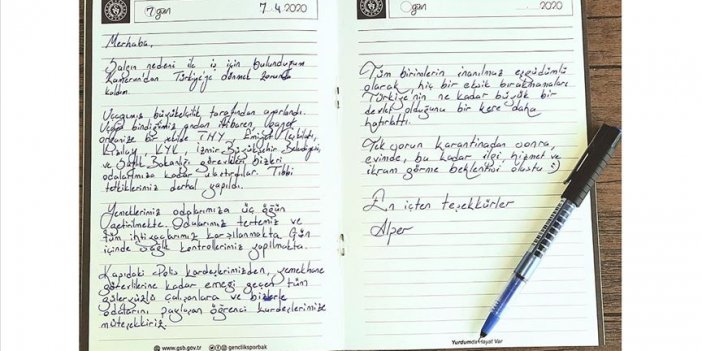 7. gün 7.4.2020
Merhaba,
Salgın nedeni ile iş için bulunduğum
Kamerun'dan Türkiye'ye dönmek zorunda
kaldım.
Uçağımız büyükelçilik tarafından ayarlandı.
Uçağa bindiğimiz andan itibaren, gayet
organize bir şekilde THY, Emniyet Teşkilatı,
Kızılay, KYK, İzmir Büyükşehir Belediyesi,
ve Sağlık Bakanlığı görevlileri bizleri
odalarımıza kadar ulaştırdılar. Tıbbi
tetkiklerimiz derhal yapıldı.
Yemeklerimiz odalarımıza üç öğün
getirilmekte. Odalarımız tertemiz ve
tüm ihtiyaçlarımız karşılanmakta. Gün
içinde sağlık kontrollerimiz yapılmakta.
Kapıdaki Polis kardeşlerimizden, yemekhane
görevlilerine kadar emeği geçen tüm
güleryüzlü çalışanlara ve bizlerle
odalarını paylaşan öğrenci kardeşlerimize
müteşekkiriz.
www.gsb.gov.tr gencliksporbak
gün 2020
Tüm birimlerin inanılmaz eşgüdümlü
olarak, hiç bir eksik bırakmamaları
Türkiye'nin ne kadar büyük bir
devlet olduğunu bir kere daha
hatırlattı.
Tek sorun karantinadan sonra,
evimde, bu kadar ilgi, hizmet ve
ikram görme beklentisi oluştu :)
En içten teşekkürler
Alper
Yurdumda Hayat Var